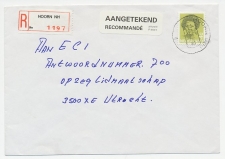 HOORN NH
R
No 1197
AANGETEKEND
RECOMMANDÉ
AAN E C I
ANTWOORDNUMMER 200
OPZEGLIDMAATSCHAP
3500XE UTRECHT